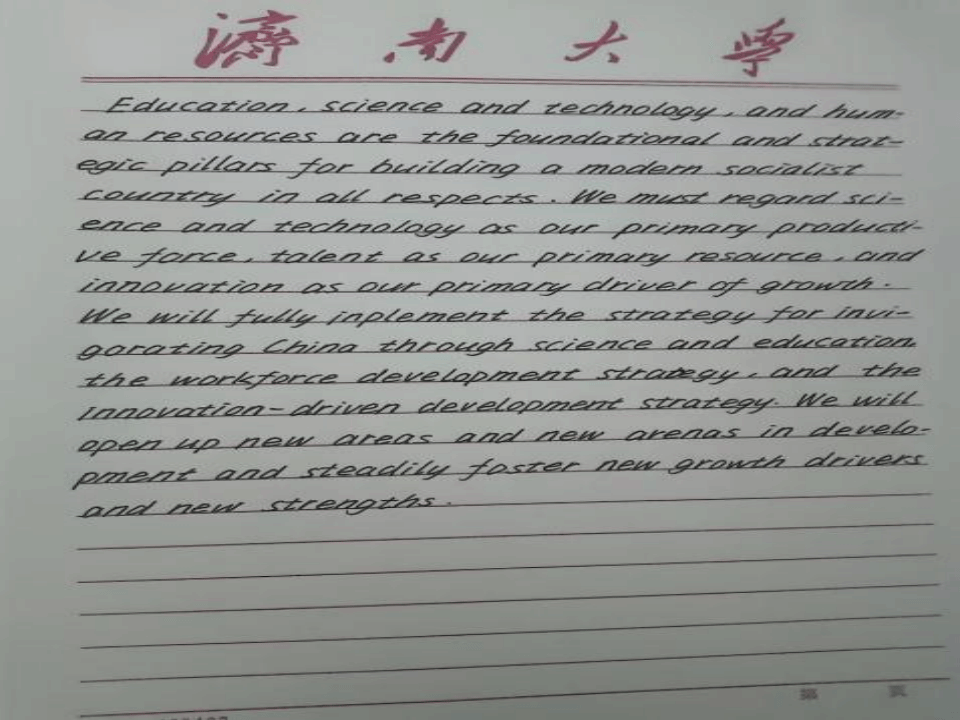 濟南大學
Education, science and technology, and hum-
an resources are the foundational and strat-
egic pillars for building a modern socialist
country in all respects. We must regard sci-
ence and technology as our primary producti-
ve force, talent as our primary resource, and
innovation as our primary driver of growth.
We will fully inplement the strategy for invi-
gorating China through science and education,
the workforce development strategy, and the
innovation-driven development strategy. We will
open up new areas and new arenas in develo-
pment and steadily foster new growth drivers
and new strengths.
第 页